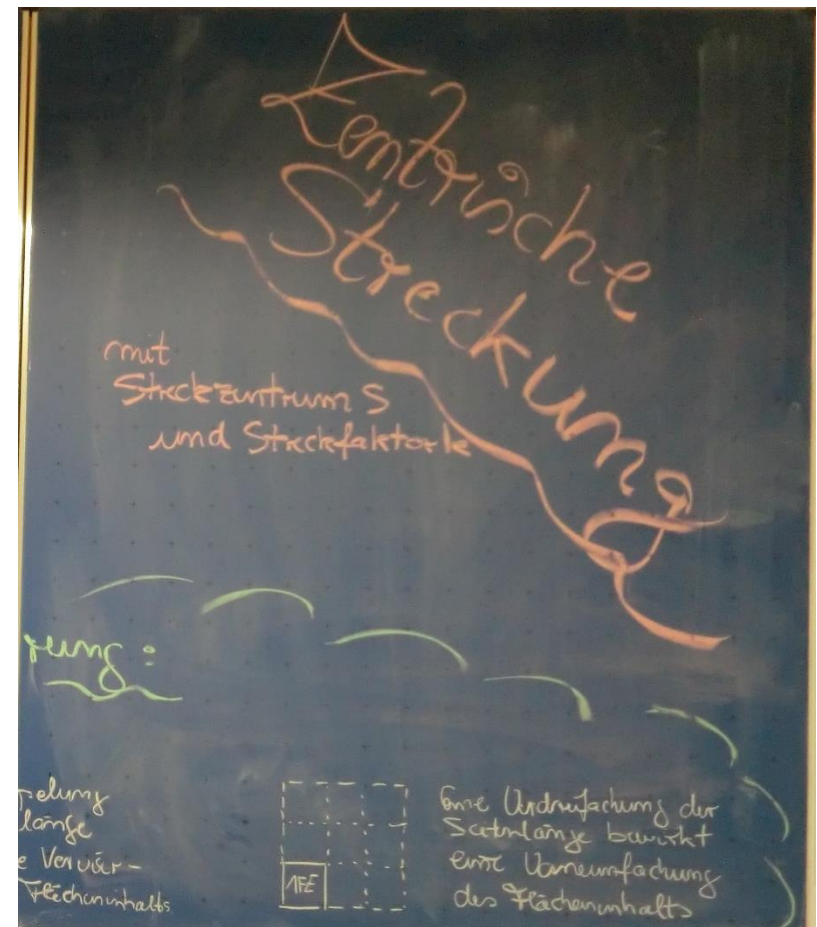 Zentrische
Streckung
mit
Streckzentrum S
und Streckfaktor k
rung:
pelung
länge
e Vervier-
Flächeninhalts
1FE
Eine Verdreifachung der
Seitenlänge bewirkt
eine Verneunfachung
des Flächeninhalts